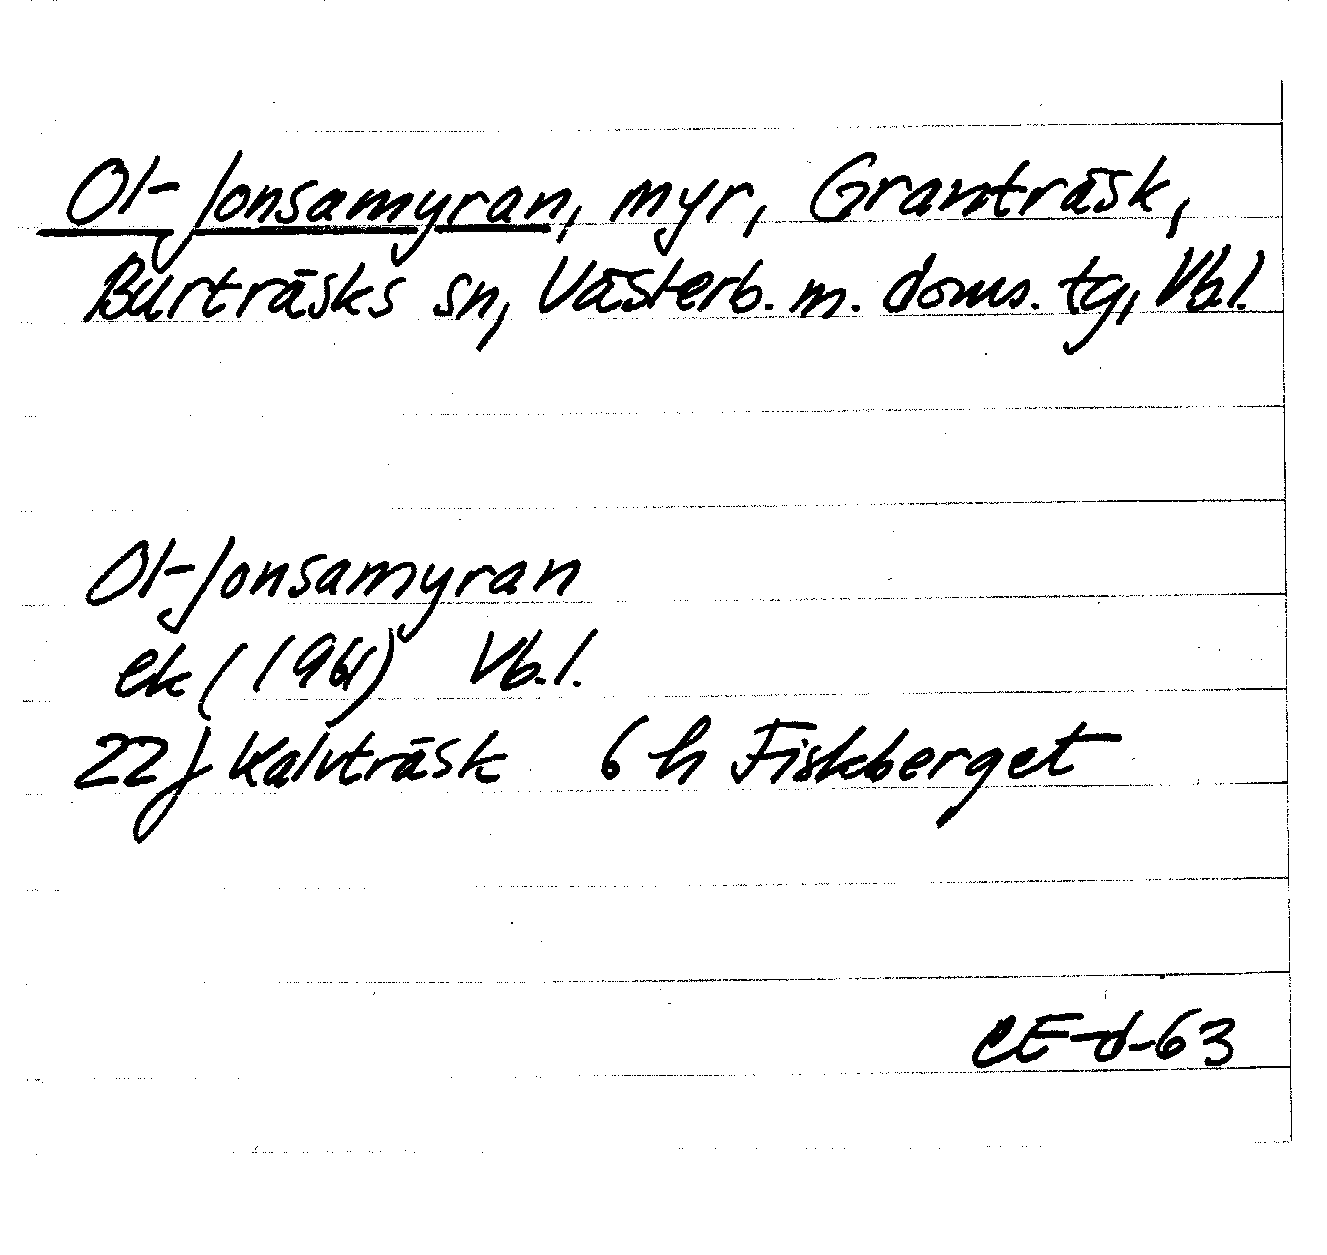 Ol-Jonsamyran, myr, Granträsk,
Burträsks sn, Västerb. m. doms. tg, Vb.l.
Ol-Jonsamyran
ek (1961) Vb.l.
22 j Kalvträsk 6 h Fiskberget
CE-d-63